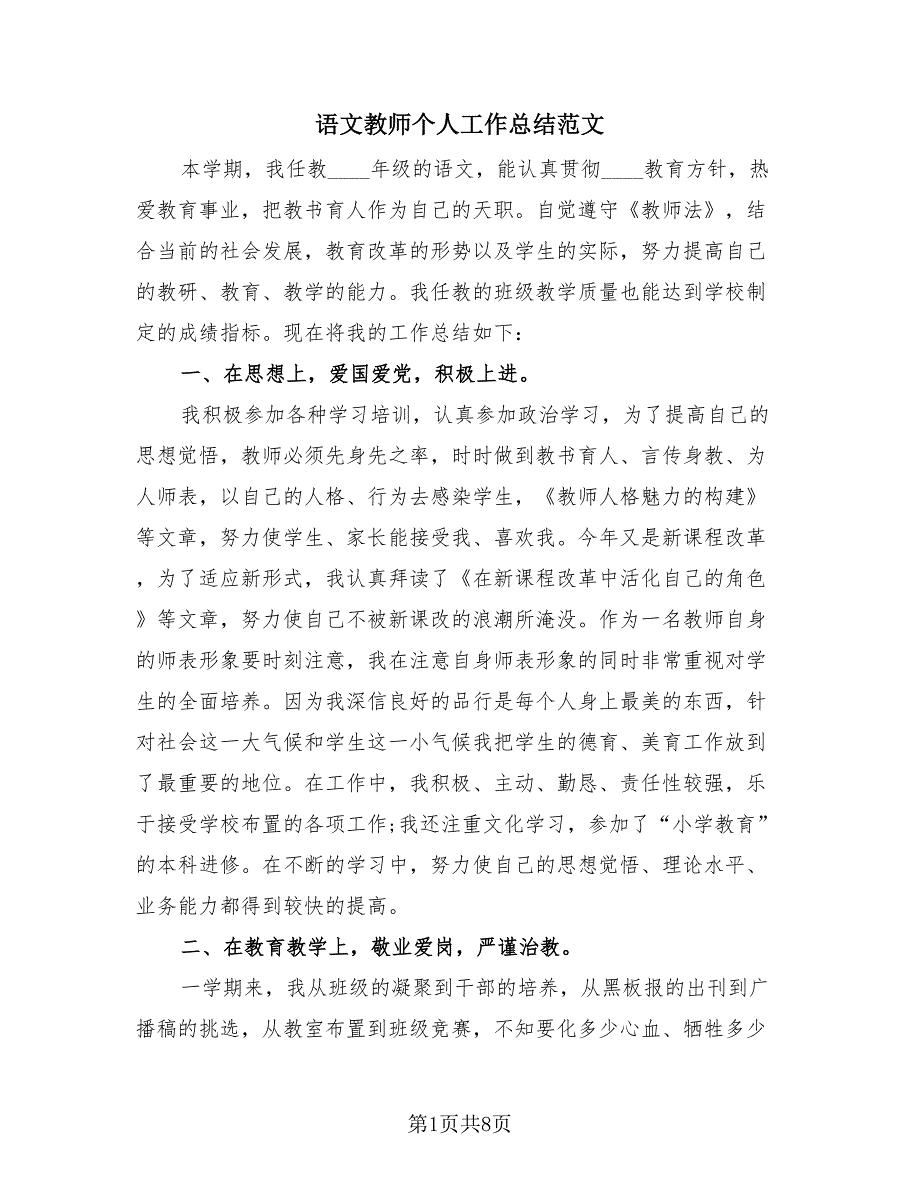 语文教师个人工作总结范文
本学期，我任教____年级的语文，能认真贯彻____教育方针，热
爱教育事业，把教书育人作为自己的天职。自觉遵守《教师法》，结
合当前的社会发展，教育改革的形势以及学生的实际，努力提高自己
的教研、教育、教学的能力。我任教的班级教学质量也能达到学校制
定的成绩指标。现在将我的工作总结如下：
一、在思想上，爱国爱党，积极上进。
我积极参加各种学习培训，认真参加政治学习，为了提高自己的
思想觉悟，教师必须先身先之率，时时做到教书育人、言传身教、为
人师表，以自己的人格、行为去感染学生，《教师人格魅力的构建》
等文章，努力使学生、家长能接受我、喜欢我。今年又是新课程改革
，为了适应新形式，我认真拜读了《在新课程改革中活化自己的角色
》等文章，努力使自己不被新课改的浪潮所淹没。作为一名教师自身
的师表形象要时刻注意，我在注意自身师表形象的同时非常重视对学
生的全面培养。因为我深信良好的品行是每个人身上最美的东西，针
对社会这一大气候和学生这一小气候我把学生的德育、美育工作放到
了最重要的地位。在工作中，我积极、主动、勤恳、责任性较强，乐
于接受学校布置的各项工作;我还注重文化学习，参加了“小学教育”
的本科进修。在不断的学习中，努力使自己的思想觉悟、理论水平、
业务能力都得到较快的提高。
二、在教育教学上，敬业爱岗，严谨治教。
一学期来，我从班级的凝聚到干部的培养，从黑板报的出刊到广
播稿的挑选，从教室布置到班级竞赛，不知要化多少心血、牺牲多少
第1页共8页